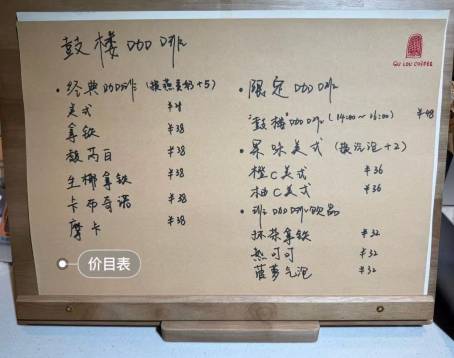 鼓楼咖啡
GU LOU COFFEE
·经典咖啡（换燕麦奶+5）
美式
拿铁 ¥38
馥芮白 ¥38
生椰拿铁 ¥38
卡布奇诺 ¥38
摩卡 ¥38
·限定咖啡
"鼓楼"咖啡（14:00~16:00） ¥48
·果味美式（换气泡+2）
橙C美式 ¥36
柚C美式 ¥36
·非咖啡饮品
抹茶拿铁 ¥32
热可可 ¥32
菠萝气泡 ¥32
价目表